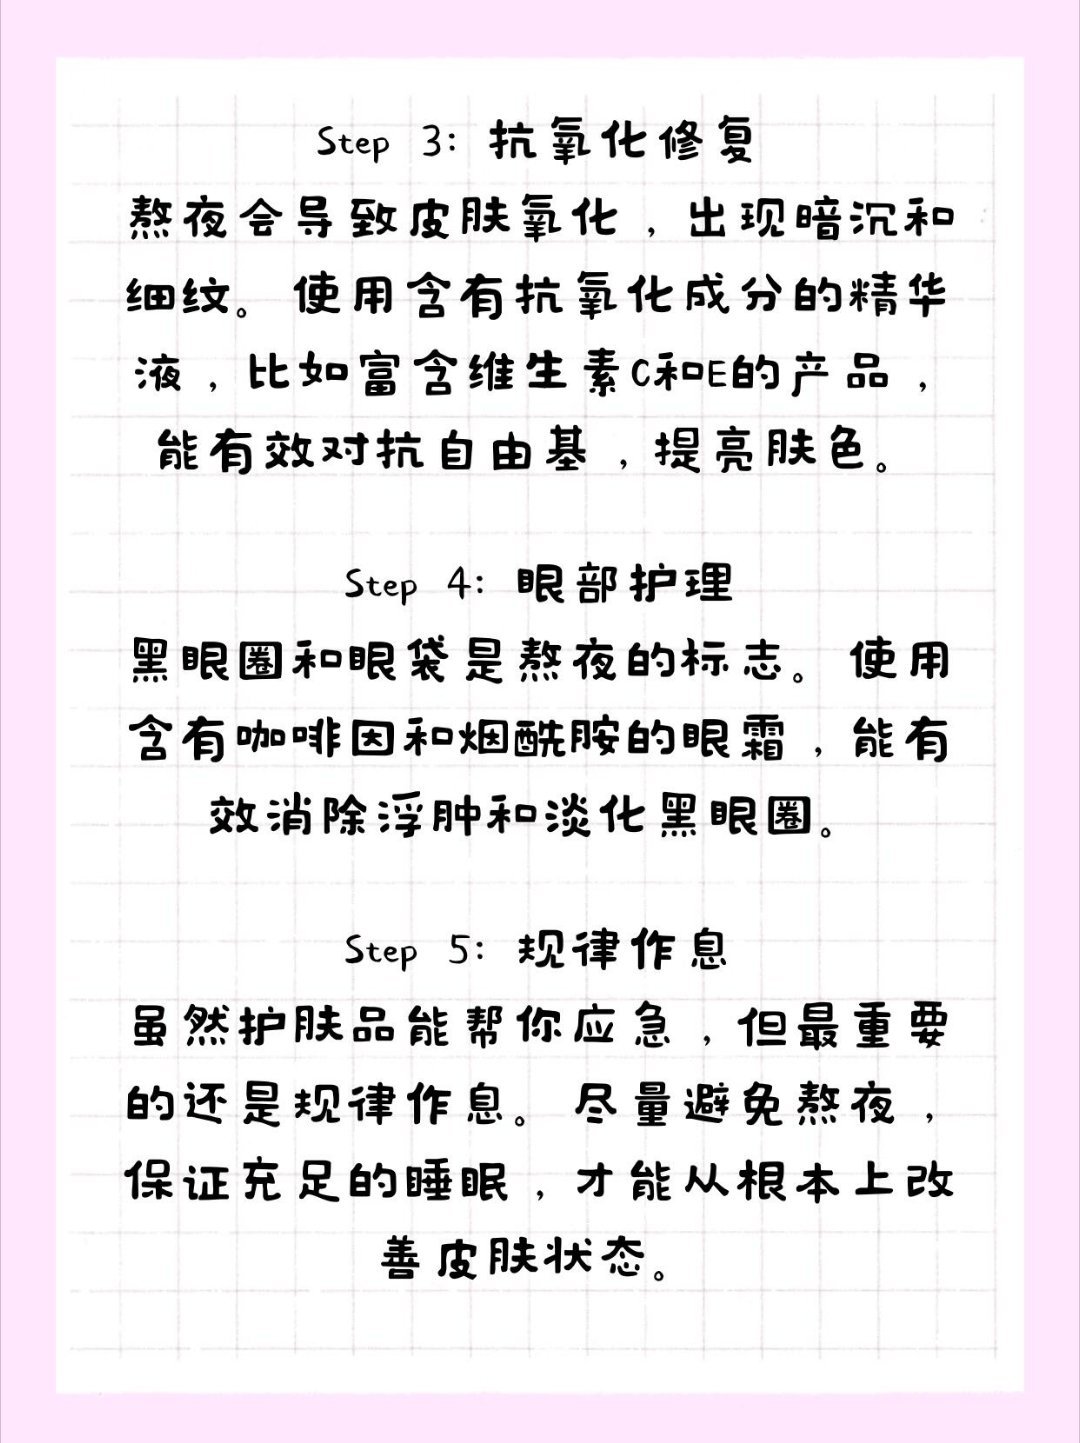 Step 3: 抗氧化修复
熬夜会导致皮肤氧化，出现暗沉和
细纹。使用含有抗氧化成分的精华
液，比如富含维生素C和E的产品，
能有效对抗自由基，提亮肤色。
Step 4: 眼部护理
黑眼圈和眼袋是熬夜的标志。使用
含有咖啡因和烟酰胺的眼霜，能有
效消除浮肿和淡化黑眼圈。
Step 5: 规律作息
虽然护肤品能帮你应急，但最重要
的还是规律作息。尽量避免熬夜，
保证充足的睡眠，才能从根本上改
善皮肤状态。